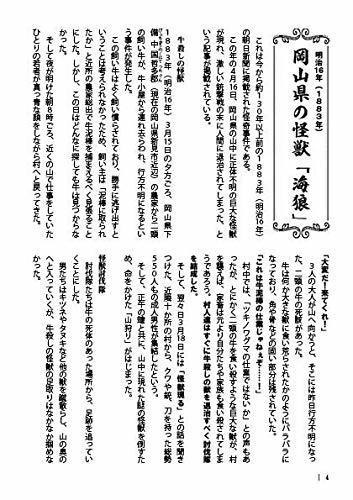 明治16年(1883年)
岡山県の怪獣「海狼」
これは今から約130年以上前の1883年(明治16年)
の朝日新聞に掲載された怪奇事件である。
この年の4月16日、岡山県の山中に正体不明の巨大な怪獣が
現れ、激しい銃撃戦の末に人間に退治されてしまった、と
いう記事が掲載されている。
牛殺しの怪獣
1883年(明治16年)3月15日の夕方ごろ、岡山県下
備中国哲多郡(現在の岡山県新見市近辺)の農家から二頭
の飼い牛が、牛小屋から連れ去らわれ、行方不明になるとい
う事件が発生した。
この飼い牛はよく飼い慣らされており、勝手に逃げ出すと
いうことは考えられなかったため、飼い主は「泥棒に取られ
たか」と近所の農家総出で牛泥棒を捕まえるべく見張ること
にした。しかし、この日はどんなに探しても牛は見つからな
そして夜が明けた朝8時ごろ、近くの山で仕事をしていた
ひとりの若者が真っ青な顔をしながら村へと戻ってきた。
「大変だー!来てくれー!」
3人の大人が山へ向かうと、そこには昨日行方不明になっ
た、二頭の牛の死骸があった。
牛は何か大きな獣に食い荒らされたかのようにバラバラに
なっており、角や骨などの固い部分は残されていた。
「これは牛泥棒の仕業じゃねぇぞ……」
村中では、「ツキノワグマの仕業ではないか」との声もあ
ったが、とにかく二頭の牛を食い殺すような大きな獣が、村
を襲えば、家畜は元より自分たちや家族も食い殺されてしま
うであろう。村人達はすぐに牛殺しの獣を退治すべく討伐隊
を結成した。
そして、翌々日3月18日には「怪獣現る」との話を聞き
つけた、近隣十か所の村から、クワや銃、刀を持った総勢
550人もの成人男性が集結したという。
そして、正午の鐘と共に、山中に現れた謎の怪獣を倒すた
め、命をかけた「山狩り」がはじまった。
怪獣討伐隊
討伐隊たちは牛の死体のあった場所から、足跡を追ってい
くことにした。
男たちはキツネやタヌキなど他の獣を蹴散らし、山の奥の
へと入っていくが、牛殺しの怪獣の足取りはなかなか掴めな
かった。
4